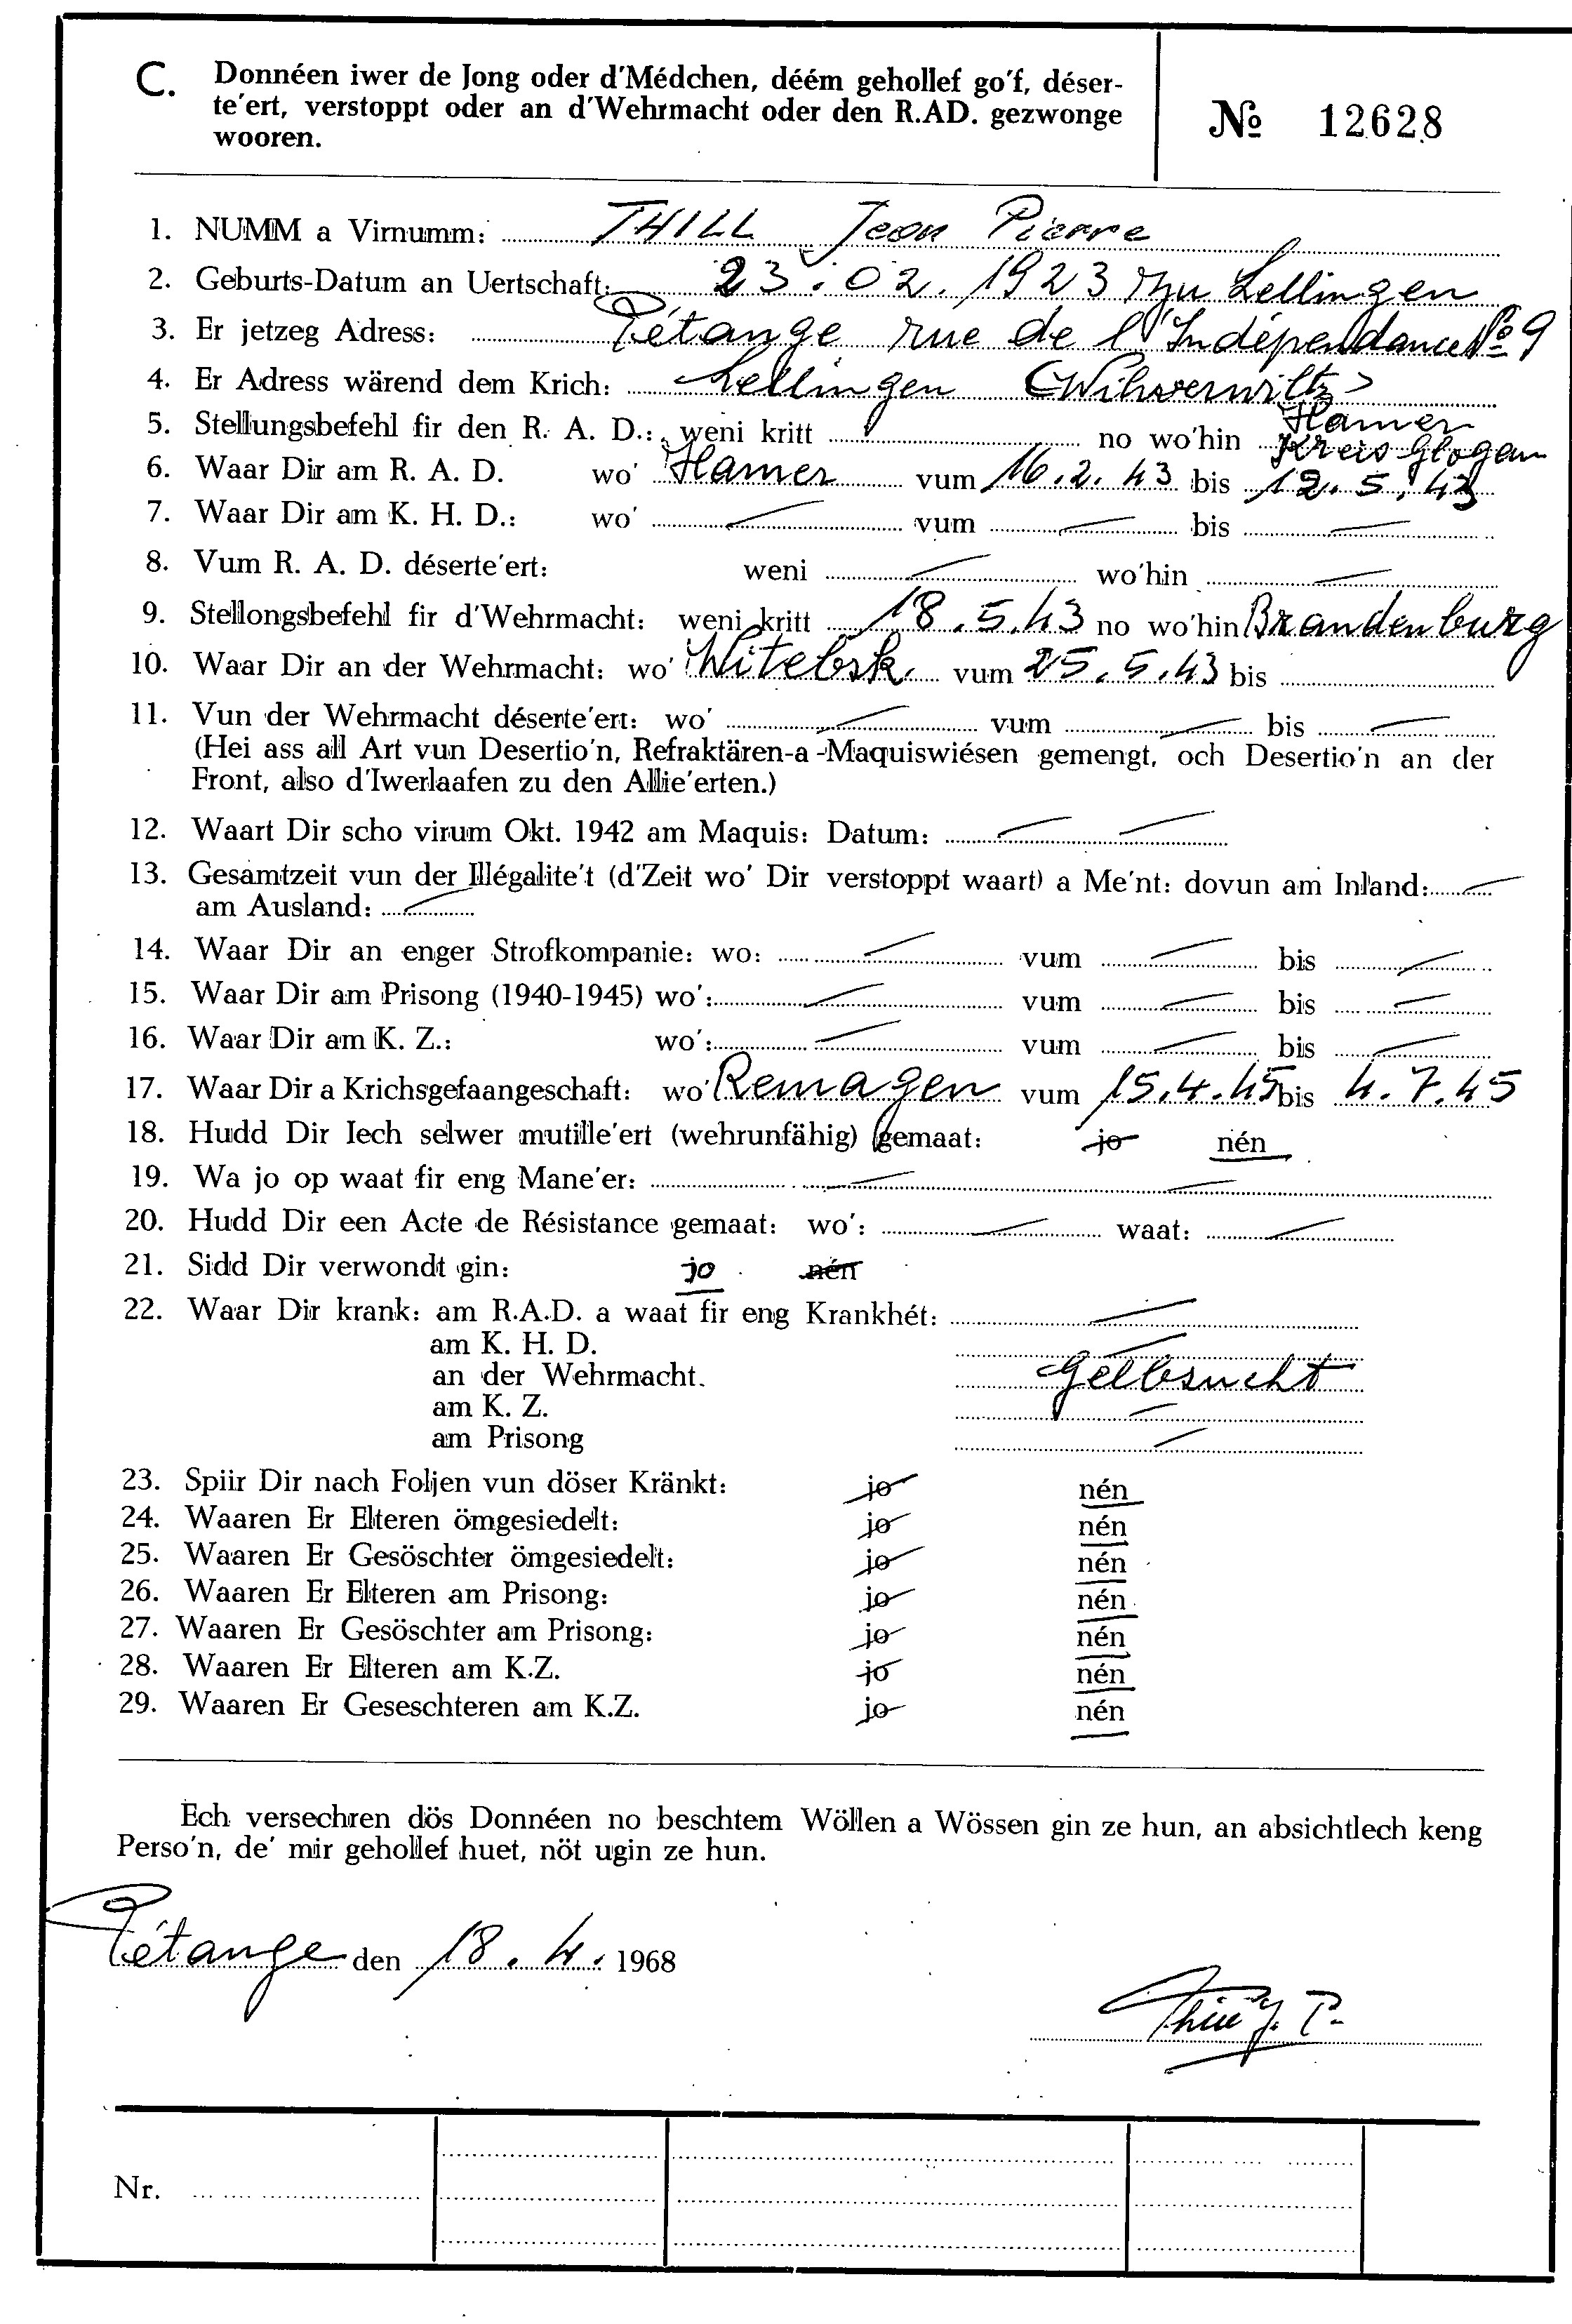 C. Donnéen iwer de Jong oder d'Médchen, déém gehollef go'f, déser-
te'ert, verstoppt oder an d'Wehrmacht oder den R.AD. gezwonge
wooren.
№ 12628
1. NUMM a Virnumm: THILL Jean Pierre
2. Geburts-Datum an Uertschaft: 23.02.1923 zu Lellingen
3. Er jetzeg Adress: Pétange rue de l'Indépendance No 9
4. Er Adress wärend dem Krich: Lellingen (Wilwerwiltz)
5. Stellungsbefehl fir den R. A. D.: weni kritt no wo'hin Hamer Kreis Glogau
6. Waar Dir am R. A. D. wo' Hamer vum 16.2.43 bis 12.5.43
7. Waar Dir am K. H. D.: wo' — vum — bis —
8. Vum R. A. D. déserte'ert: weni — wo'hin —
9. Stellongsbefehl fir d'Wehrmacht: weni kritt 18.5.43 no wo'hin Brandenburg
10. Waar Dir an der Wehrmacht: wo' Witebsk. vum 25.5.43 bis
11. Vun der Wehrmacht déserte'ert: wo' — vum — bis —
(Hei ass all Art vun Desertio'n, Refraktären-a-Maquiswiésen gemengt, och Desertio'n an der
Front, also d'Iwerlaafen zu den Allie'erten.)
12. Waart Dir scho virum Okt. 1942 am Maquis: Datum: — —
13. Gesamtzeit vun der Illégalite't (d'Zeit wo' Dir verstoppt waart) a Me'nt: dovun am Inland: —
am Ausland: —
14. Waar Dir an enger Strofkompanie: wo: — vum — bis —
15. Waar Dir am Prisong (1940-1945) wo': — vum — bis —
16. Waar Dir am K. Z.: wo': — vum — bis —
17. Waar Dir a Krichsgefaangeschaft: wo' Remagen vum 15.4.45 bis 4.7.45
18. Hudd Dir Iech selwer mutille'ert (wehrunfähig) gemaat: jo nén
19. Wa jo op waat fir eng Mane'er: — —
20. Hudd Dir een Acte de Résistance gemaat: wo': — waat: —
21. Sidd Dir verwondt gin: jo nén
22. Waar Dir krank: am R.A.D. a waat fir eng Krankhét: —
am K. H. D. —
an der Wehrmacht. Gelbsucht
am K. Z. —
am Prisong —
23. Spiir Dir nach Foljen vun döser Kränkt: jo nén
24. Waaren Er Elteren ömgesiedelt: jo nén
25. Waaren Er Gesöschter ömgesiedelt: jo nén
26. Waaren Er Elteren am Prisong: jo nén
27. Waaren Er Gesöschter am Prisong: jo nén
28. Waaren Er Elteren am K.Z. jo nén
29. Waaren Er Geseschteren am K.Z. jo nén
Ech versechren dös Donnéen no beschtem Wöllen a Wössen gin ze hun, an absichtlech keng
Perso'n, de' mir gehollef huet, nöt ugin ze hun.
Pétange den 18.4. 1968
Thill J. P.
Nr.